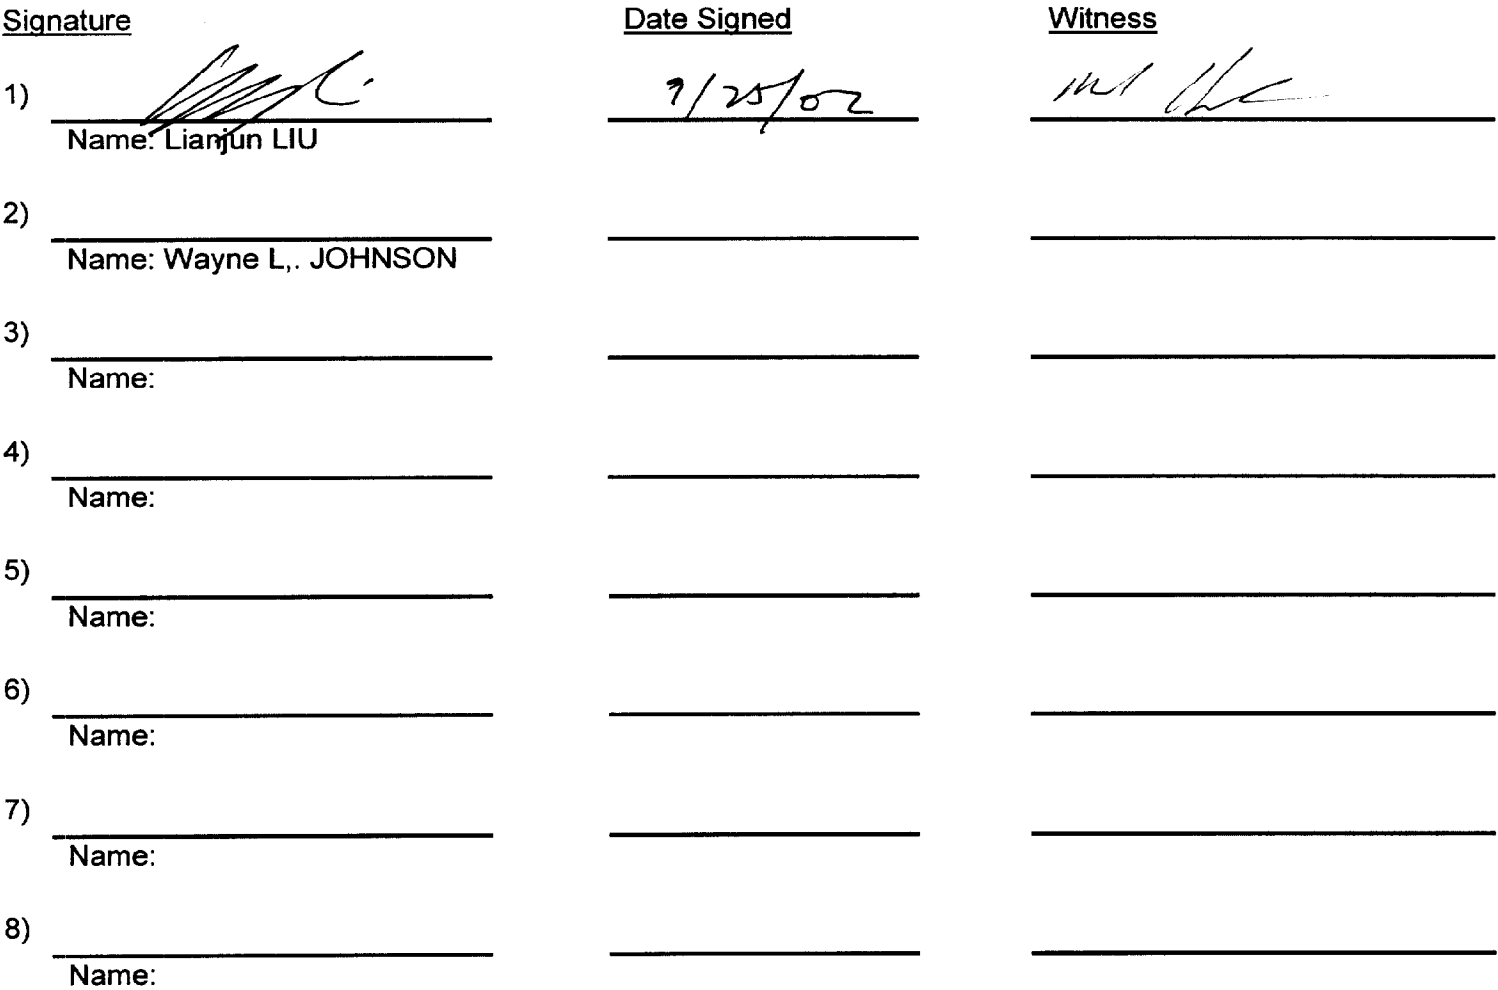 Signature Date Signed Witness
1) 9/25/02
Name: Lianjun LIU
2)
Name: Wayne L,. JOHNSON
3)
Name:
4)
Name:
5)
Name:
6)
Name:
7)
Name:
8)
Name: